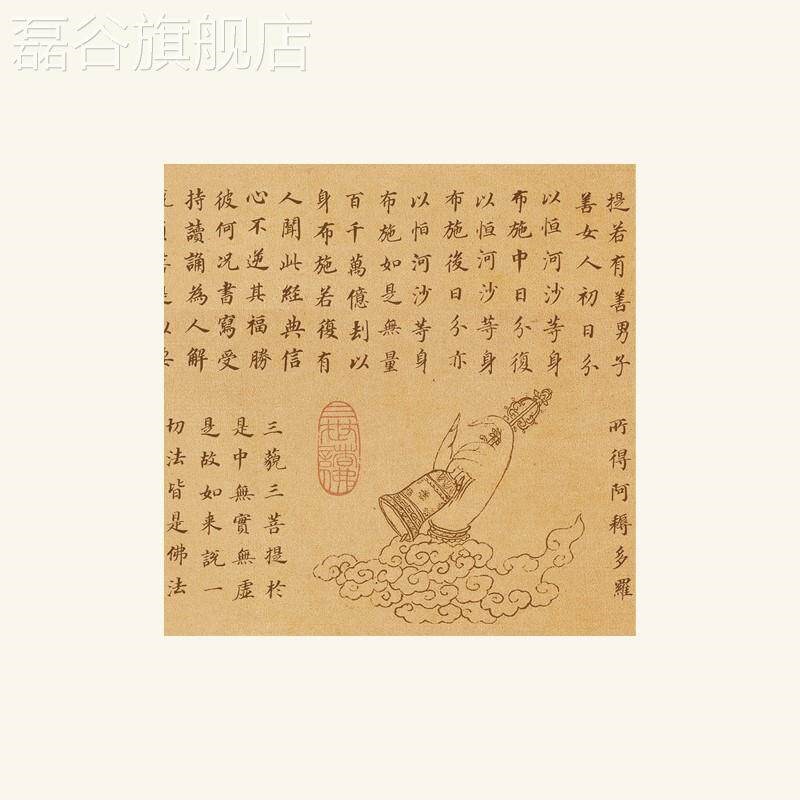 磊谷旗舰店
提若有善男子
善女人初日分
以恒河沙等身
布施中日分復
以恒河沙等身
布施後日分亦
以恒河沙等身
布施如是無量
百千萬億劫以
身布施若復有
人聞此經典信
心不逆其福勝
彼何况書寫受
持讀誦為人解
所得阿耨多羅
三藐三菩提於
是中無實無虛
是故如来說一
切法皆是佛法